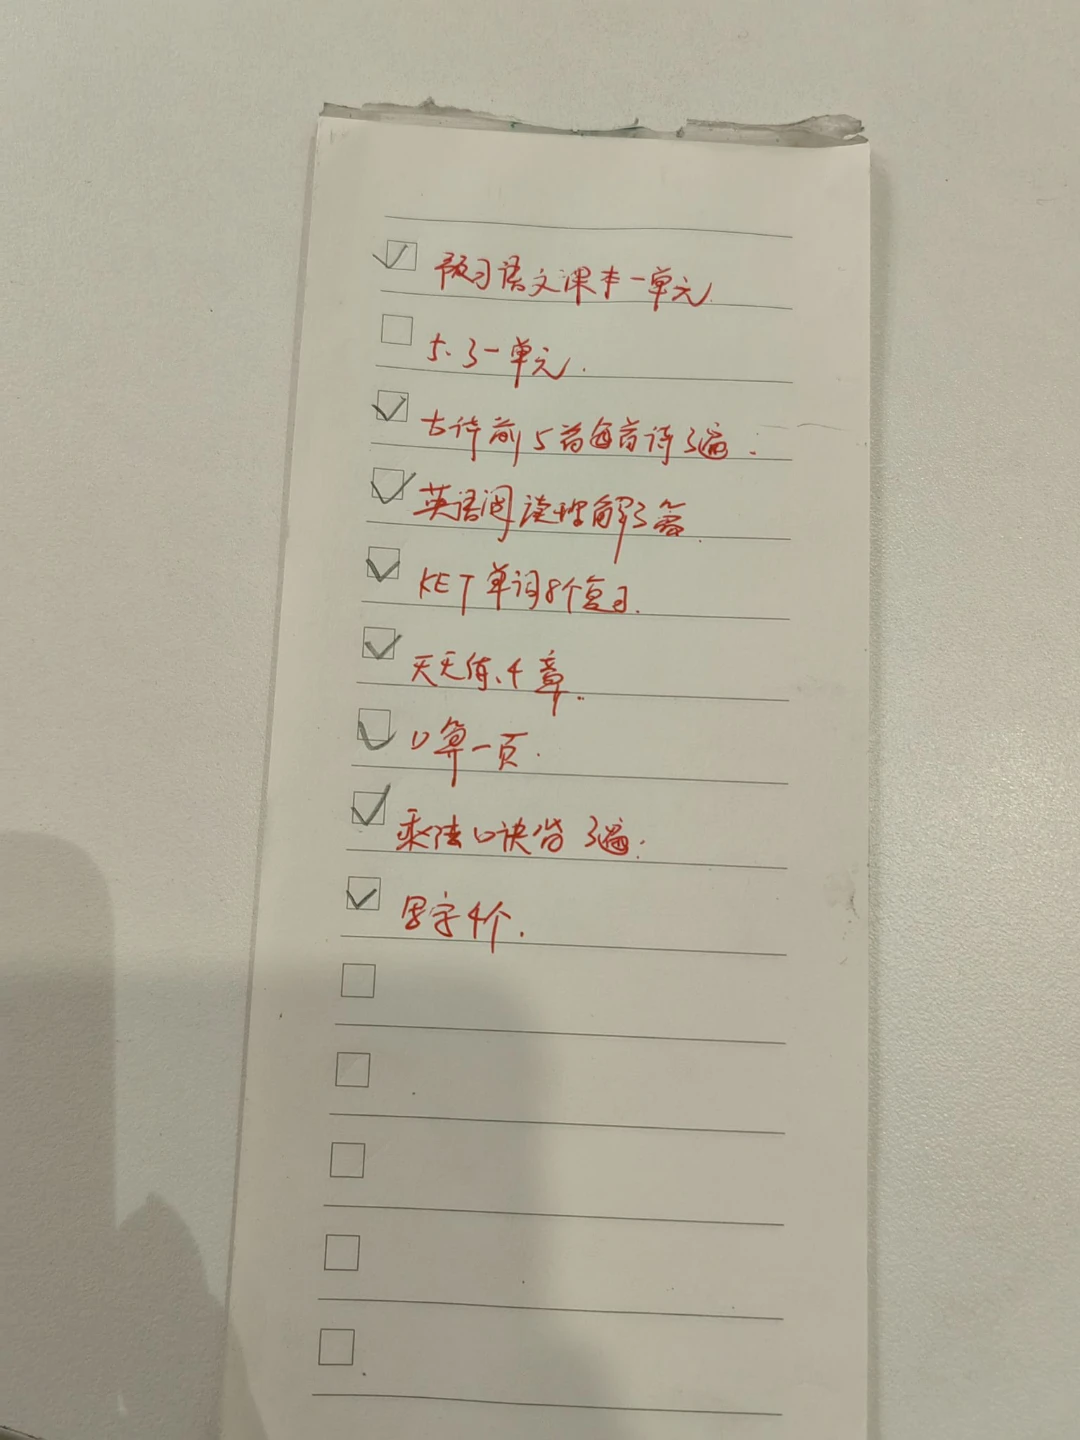 预习语文课本一单元.
5.3一单元.
古诗前5首每首读3遍.
英语阅读理解3篇.
KET单词8个复习.
天天练4章.
口算一页.
乘法口诀背3遍.
写字4个.